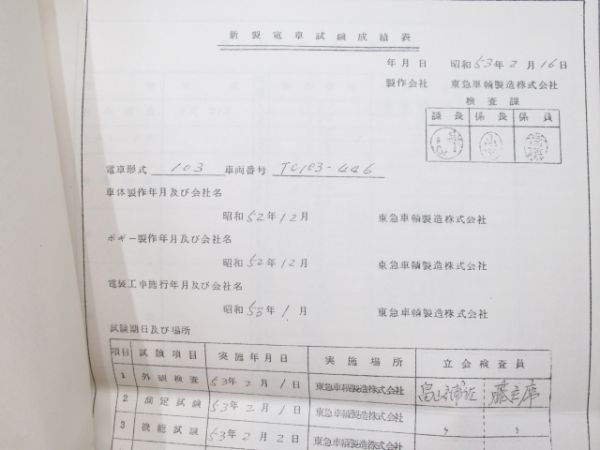 新製電車試験成績表
年月日 昭和53年2月16日
製作会社 東急車輛製造株式会社
検査課
課長 係長 係員
電車形式 103 車両番号 TC103-446
車体製作年月及び会社名
昭和52年12月 東急車輛製造株式会社
ボギー製作年月及び会社名
昭和52年12月 東急車輛製造株式会社
電装工事施行年月及び会社名
昭和53年1月 東急車輛製造株式会社
試験期日及び場所
項目 試験項目 実施年月日 実施場所 立会検査員
1 外観検査 53年2月1日 東急車輛製造株式会社
2 測定試験 53年2月1日 東急車輛製造株式会社 〃 〃
3 機能試験 53年2月2日 東急車輛製造株式会社